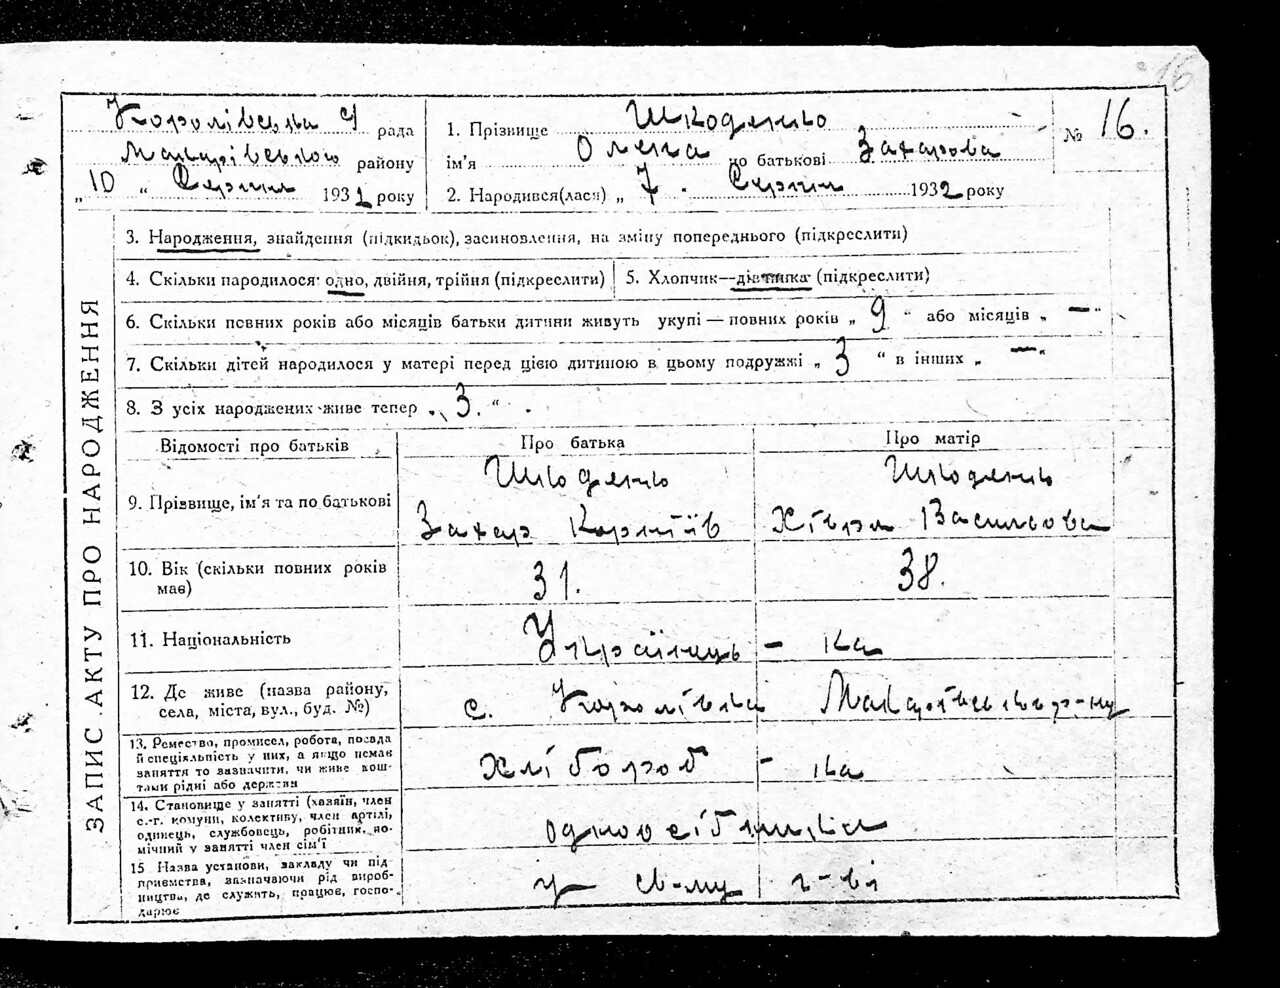 16
Королівська
рада
Макарівського району
„10“ Серпня 1932 року
1. Прізвище Шкоденко
ім'я Олена по батькові Захарова
2. Народився(лася) „7. Серпня 1932 року
№ 16.
ЗАПИС АКТУ ПРО НАРОДЖЕННЯ
3. Народження, знайдення (підкидьок), засиновлення, на зміну попереднього (підкреслити)
4. Скільки народилося: одно, двійня, трійня (підкреслити)
5. Хлопчик—дівчинка (підкреслити)
6. Скільки повних років або місяців батьки дитини живуть укупі — повних років „ 9 “ або місяців „ — “
7. Скільки дітей народилося у матері перед цією дитиною в цьому подружжі „ 3 “ в інших „ — “
8. З усіх народжених живе тепер „ 3. “
Відомості про батьків
Про батька
Про матір
9. Прізвище, ім'я та по батькові
Шкоденко
Захар Корніїв
Шкоденко
Хівря Васильова
10. Вік (скільки повних років
має)
31.
38.
11. Національність
Українець - ка
12. Де живе (назва району,
села, міста, вул., буд. №)
с. Королівка Макарівськ. р-ну
13. Ремество, промисел, робота, посада
й спеціяльність у них, а якщо немає
заняття то зазначити, чи живе кош-
тами рідні або держави
хлібороб - ка
14. Становище у занятті (хазяїн, член
с.-г. комуни, колективу, член артілі,
одинець, службовець, робітник, по-
мічний у занятті член сім'ї
одноосібники
15 Назва установи, закладу чи під
приємства, зазначаючи рід вироб-
ництва, де служить, працює, госпо-
дарює
у св-му г-ві